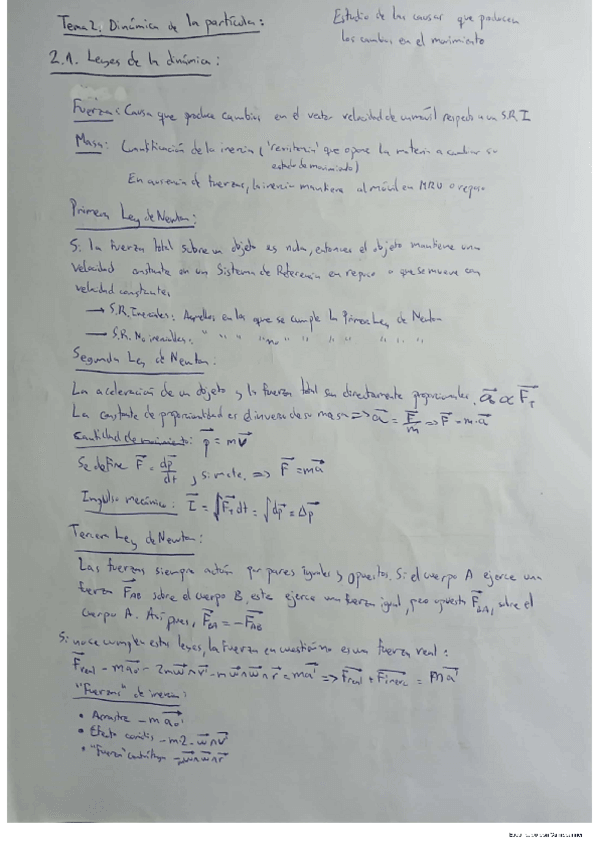 Tema 2. Dinámica de la partícula:
Estudio de las causas que producen
los cambios en el movimiento
2.1. Leyes de la dinámica:
Fuerza: Causa que produce cambios en el vector velocidad de un móvil respecto a un S.R.I
Masa: Cuantificación de la inercia ('resistencia' que opone la materia a cambiar su
estado de movimiento)
En ausencia de fuerzas, la inercia mantiene al móvil en MRU o reposo
Primera Ley de Newton:
Si la fuerza total sobre un objeto es nula, entonces el objeto mantiene una
velocidad constante en un Sistema de Referencia en reposo o que se mueve con
velocidad constante.
→ S.R. Inerciales: Aquellos en los que se cumple la Primera Ley de Newton
→ S.R. No inerciales: " " " "no" " " " " " "
Segunda Ley de Newton:
La aceleración de un objeto y la fuerza total son directamente proporcionales. a⃗ ∝ F⃗_T
La constante de proporcionalidad es el inverso de su masa => a⃗ = F⃗/m => F⃗ = m·a⃗
Cantidad de movimiento: p⃗ = mv⃗
Se define F⃗ = dp⃗/dt, si m cte. => F⃗ = ma⃗
Impulso mecánico: I⃗ = ∫F⃗_T dt = ∫dp⃗ = Δp⃗
Tercera Ley de Newton:
Las fuerzas siempre actúan por pares iguales y opuestos. Si el cuerpo A ejerce una
fuerza F⃗_AB sobre el cuerpo B, este ejerce una fuerza igual, pero opuesta F⃗_BA, sobre el
cuerpo A. Así pues, F⃗_BA = -F⃗_AB
Si no se cumplen estas leyes, la fuerza en cuestión no es una fuerza real:
F⃗real - ma⃗₀' - 2mw⃗∧v⃗' - mw⃗∧w⃗∧r⃗ = ma⃗' => F⃗real + F⃗iner = ma⃗'
"Fuerzas" de inercia:
• Arrastre -ma⃗₀'
• Efecto coriolis -m·2·w⃗∧v⃗'
• "Fuerza" centrífuga -mw⃗∧w⃗∧r⃗